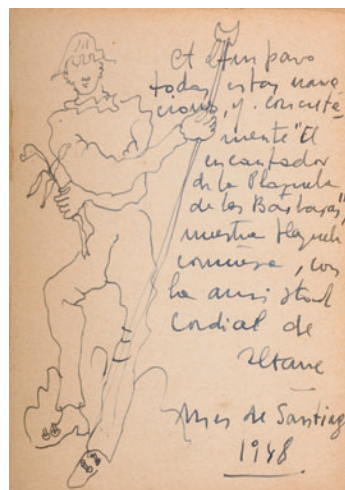 A Amparo
todas estas narra
ciones, y concreta-
mente "El
encantador
de la Plazuela
de las Bárbaras",
nuestra Plazuela
conquesa, con
la amistad
cordial de
Mes de Santiago
1948